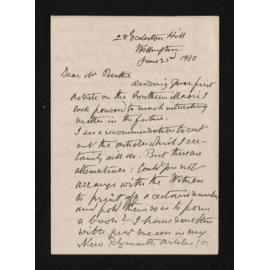 28 Eccleston Hill
Wellington
June 22nd 1920
Dear Mr Beattie
Reading your first
article on the Southern Maori I
look forward to much interesting
matter in the future.
I see a recommendation to cut
out the articles which I cer-
tainly will do. But there are
alternatives: Could you not
arrange with the Witness
to print off a certain number
and put them so as to form
a book? I have done this
with great success in my
New Plymouth articles (or